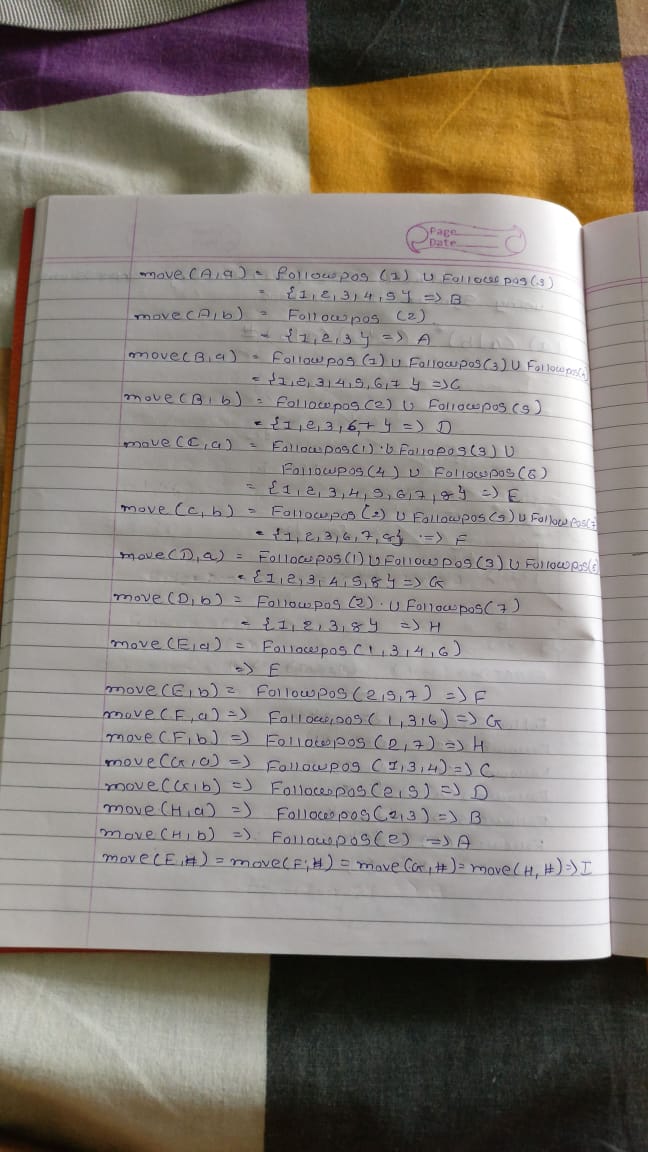 Page
Date
move(A,a) = Followpos(1) U Followpos(3)
= {1,2,3,4,5} => B
move(A,b) = Followpos(2)
= {1,2,3} => A
move(B,a) = Followpos(1) U Followpos(3) U Followpos(4)
= {1,2,3,4,5,6,7} => C
move(B,b) = Followpos(2) U Followpos(5)
= {1,2,3,6,7} => D
move(C,a) = Followpos(1) U Followpos(3) U
Followpos(4) U Followpos(6)
= {1,2,3,4,5,6,7,8} => E
move(C,b) = Followpos(2) U Followpos(5) U Followpos(7)
= {1,2,3,6,7,8} => F
move(D,a) = Followpos(1) U Followpos(3) U Followpos(6)
= {1,2,3,4,5,8} => G
move(D,b) = Followpos(2) U Followpos(7)
= {1,2,3,8} => H
move(E,a) = Followpos(1,3,4,6)
=> E
move(E,b) = Followpos(2,5,7) => F
move(F,a) => Followpos(1,3,6) => G
move(F,b) => Followpos(2,7) => H
move(G,a) => Followpos(1,3,4) => C
move(G,b) => Followpos(2,5) => D
move(H,a) => Followpos(1,3) => B
move(H,b) => Followpos(2) => A
move(E,#) = move(F,#) = move(G,#) = move(H,#) => I